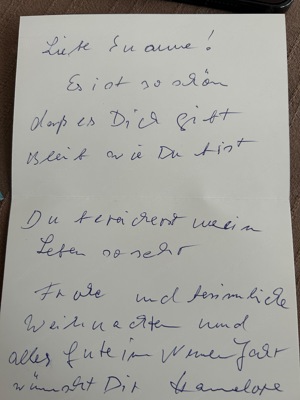 Liebe
Es ist so schön
dass es Dich gibt
Bleib wie Du bist
Du bereicherst mein
Leben so sehr
Frohe und besinnliche
Weihnachten und
alles Gute im Neuen Jahr
wünscht Dir Hannelore